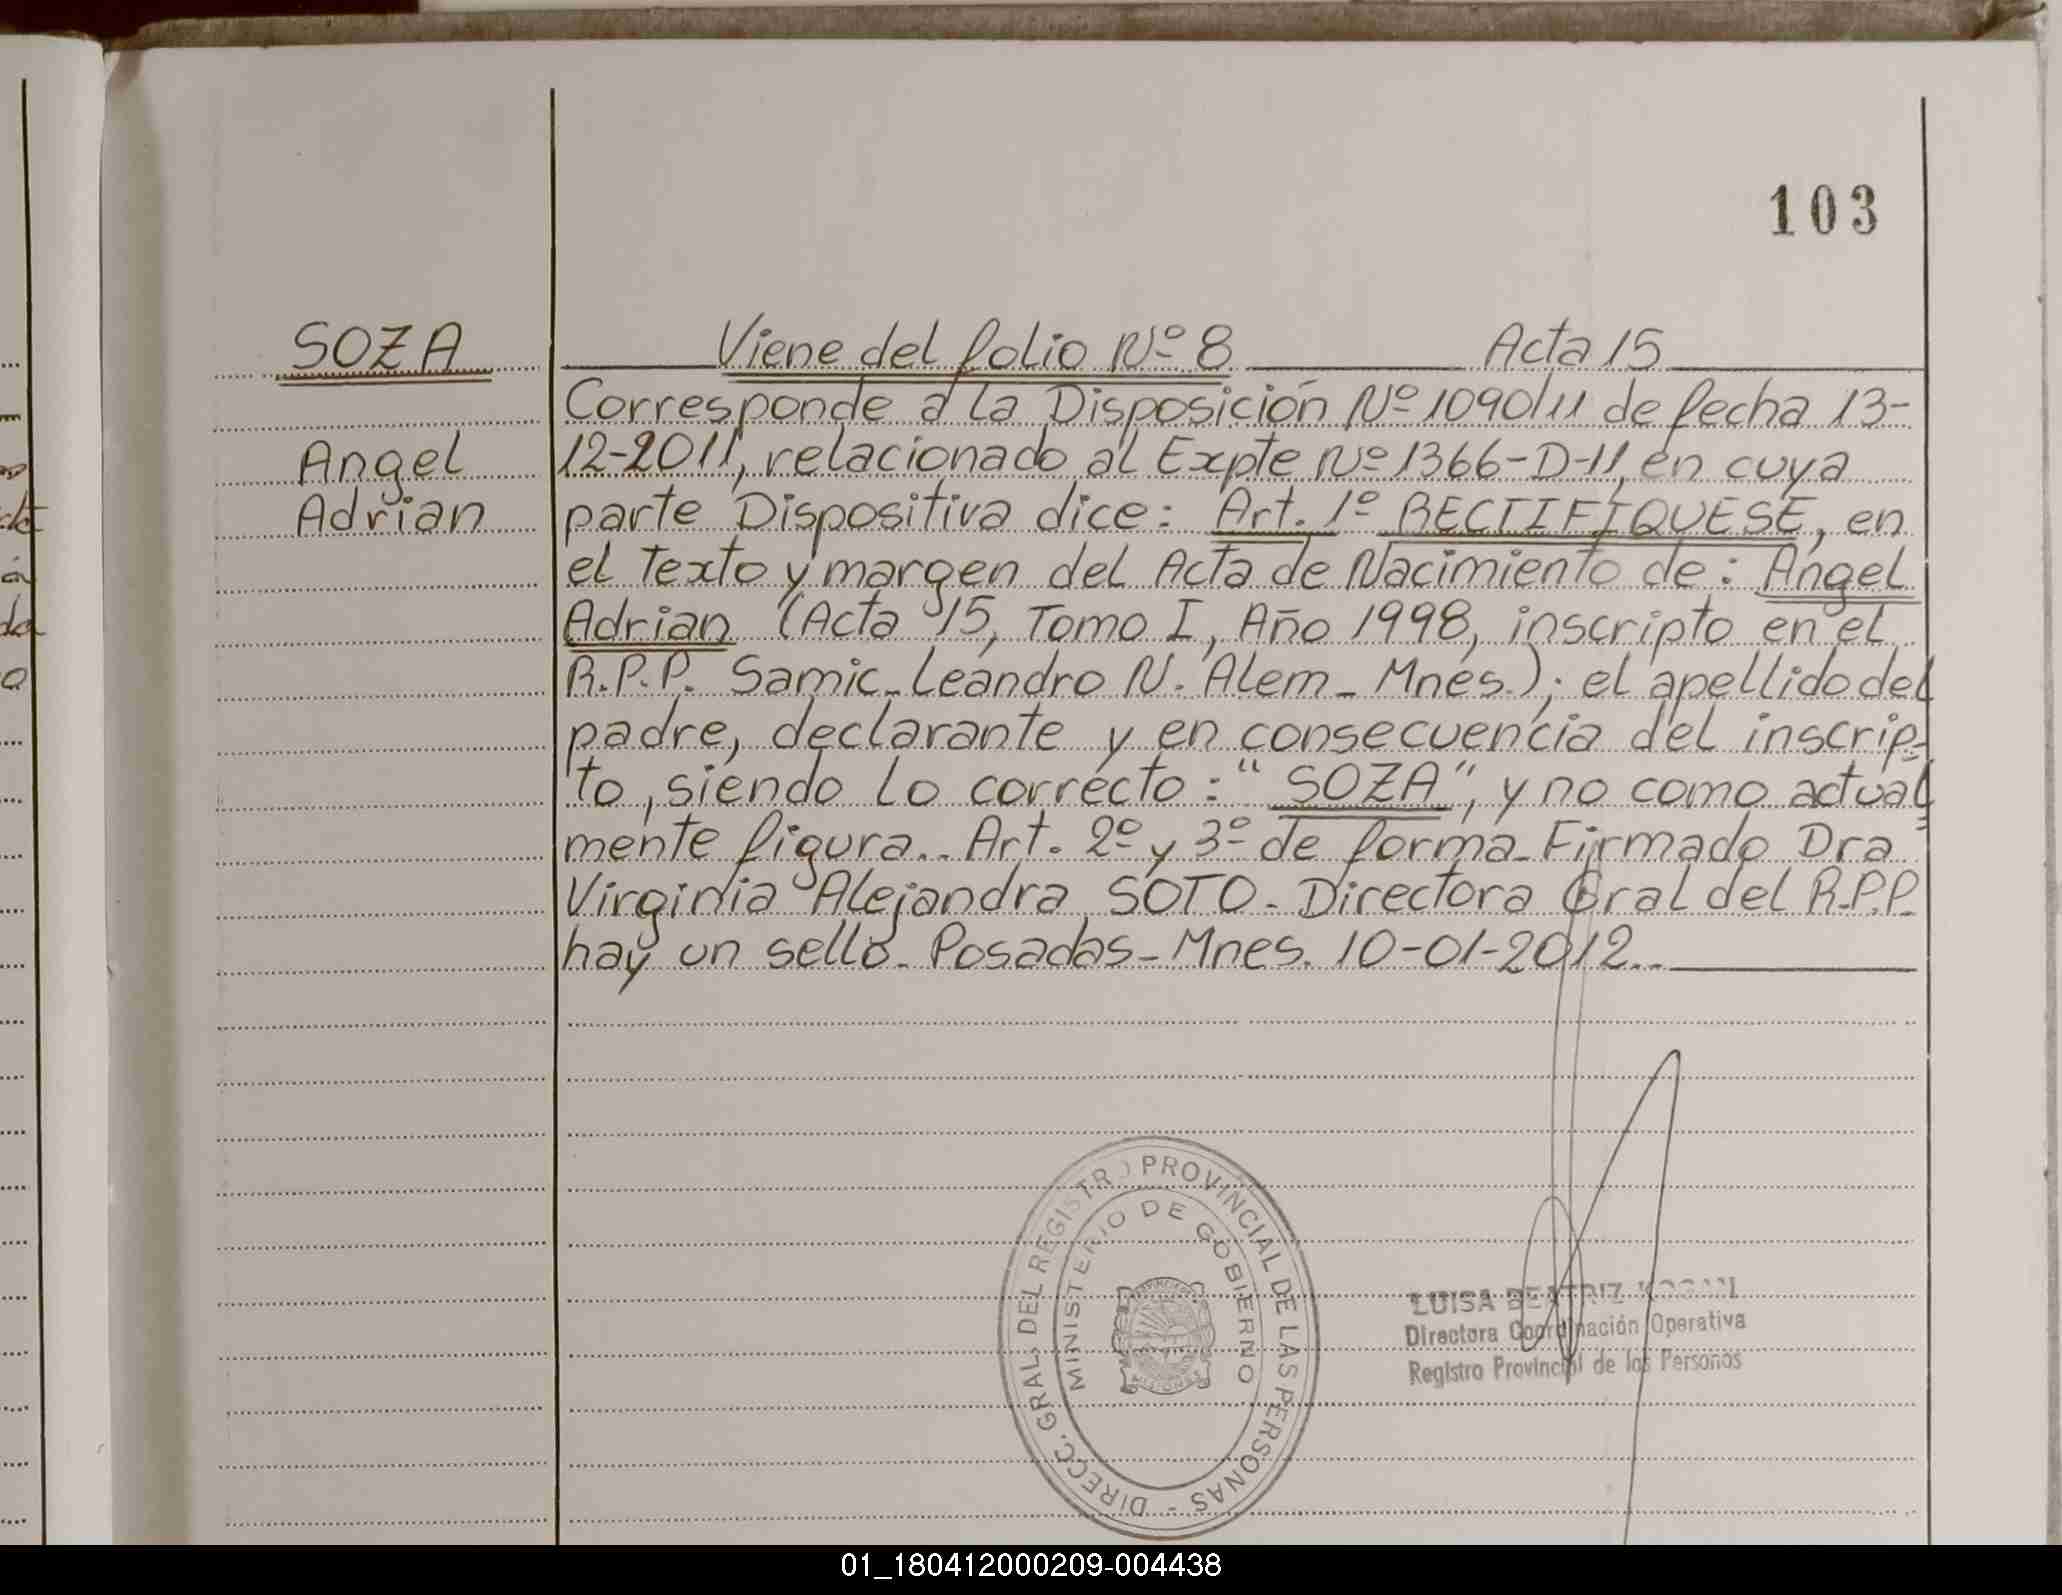 103
SOZA
Angel
Adrian
Viene del folio Nº 8 Acta 15
Corresponde a la Disposición Nº 1090/11 de fecha 13-
12-2011, relacionado al Expte Nº 1366-D-11, en cuya
parte Dispositiva dice: Art. 1º RECTIFIQUESE, en
el Texto y margen del Acta de Nacimiento de: Angel
Adrian (Acta 15, Tomo I, Año 1998, inscripto en el
R.P.P. Samic-Leandro N. Alem- Mnes.); el apellido del
padre, declarante y en consecuencia del inscrip-
to, siendo lo correcto: "SOZA", y no como actual
mente figura.. Art. 2º y 3º de forma- Firmado Dra
Virginia Alejandra SOTO- Directora Gral del R.P.P.
hay un sello- Posadas- Mnes. 10-01-2012..
DIRECC. GRAL. DEL REGISTRO PROVINCIAL DE LAS PERSONAS -
MINISTERIO DE GOBIERNO
MISIONES
LUISA BEATRIZ KOGAN
Directora Coordinación Operativa
Registro Provincial de las Personas
01_180412000209-004438